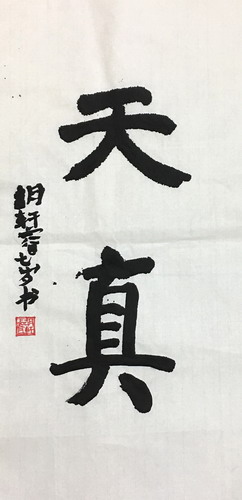 天真
胡轩睿七岁书